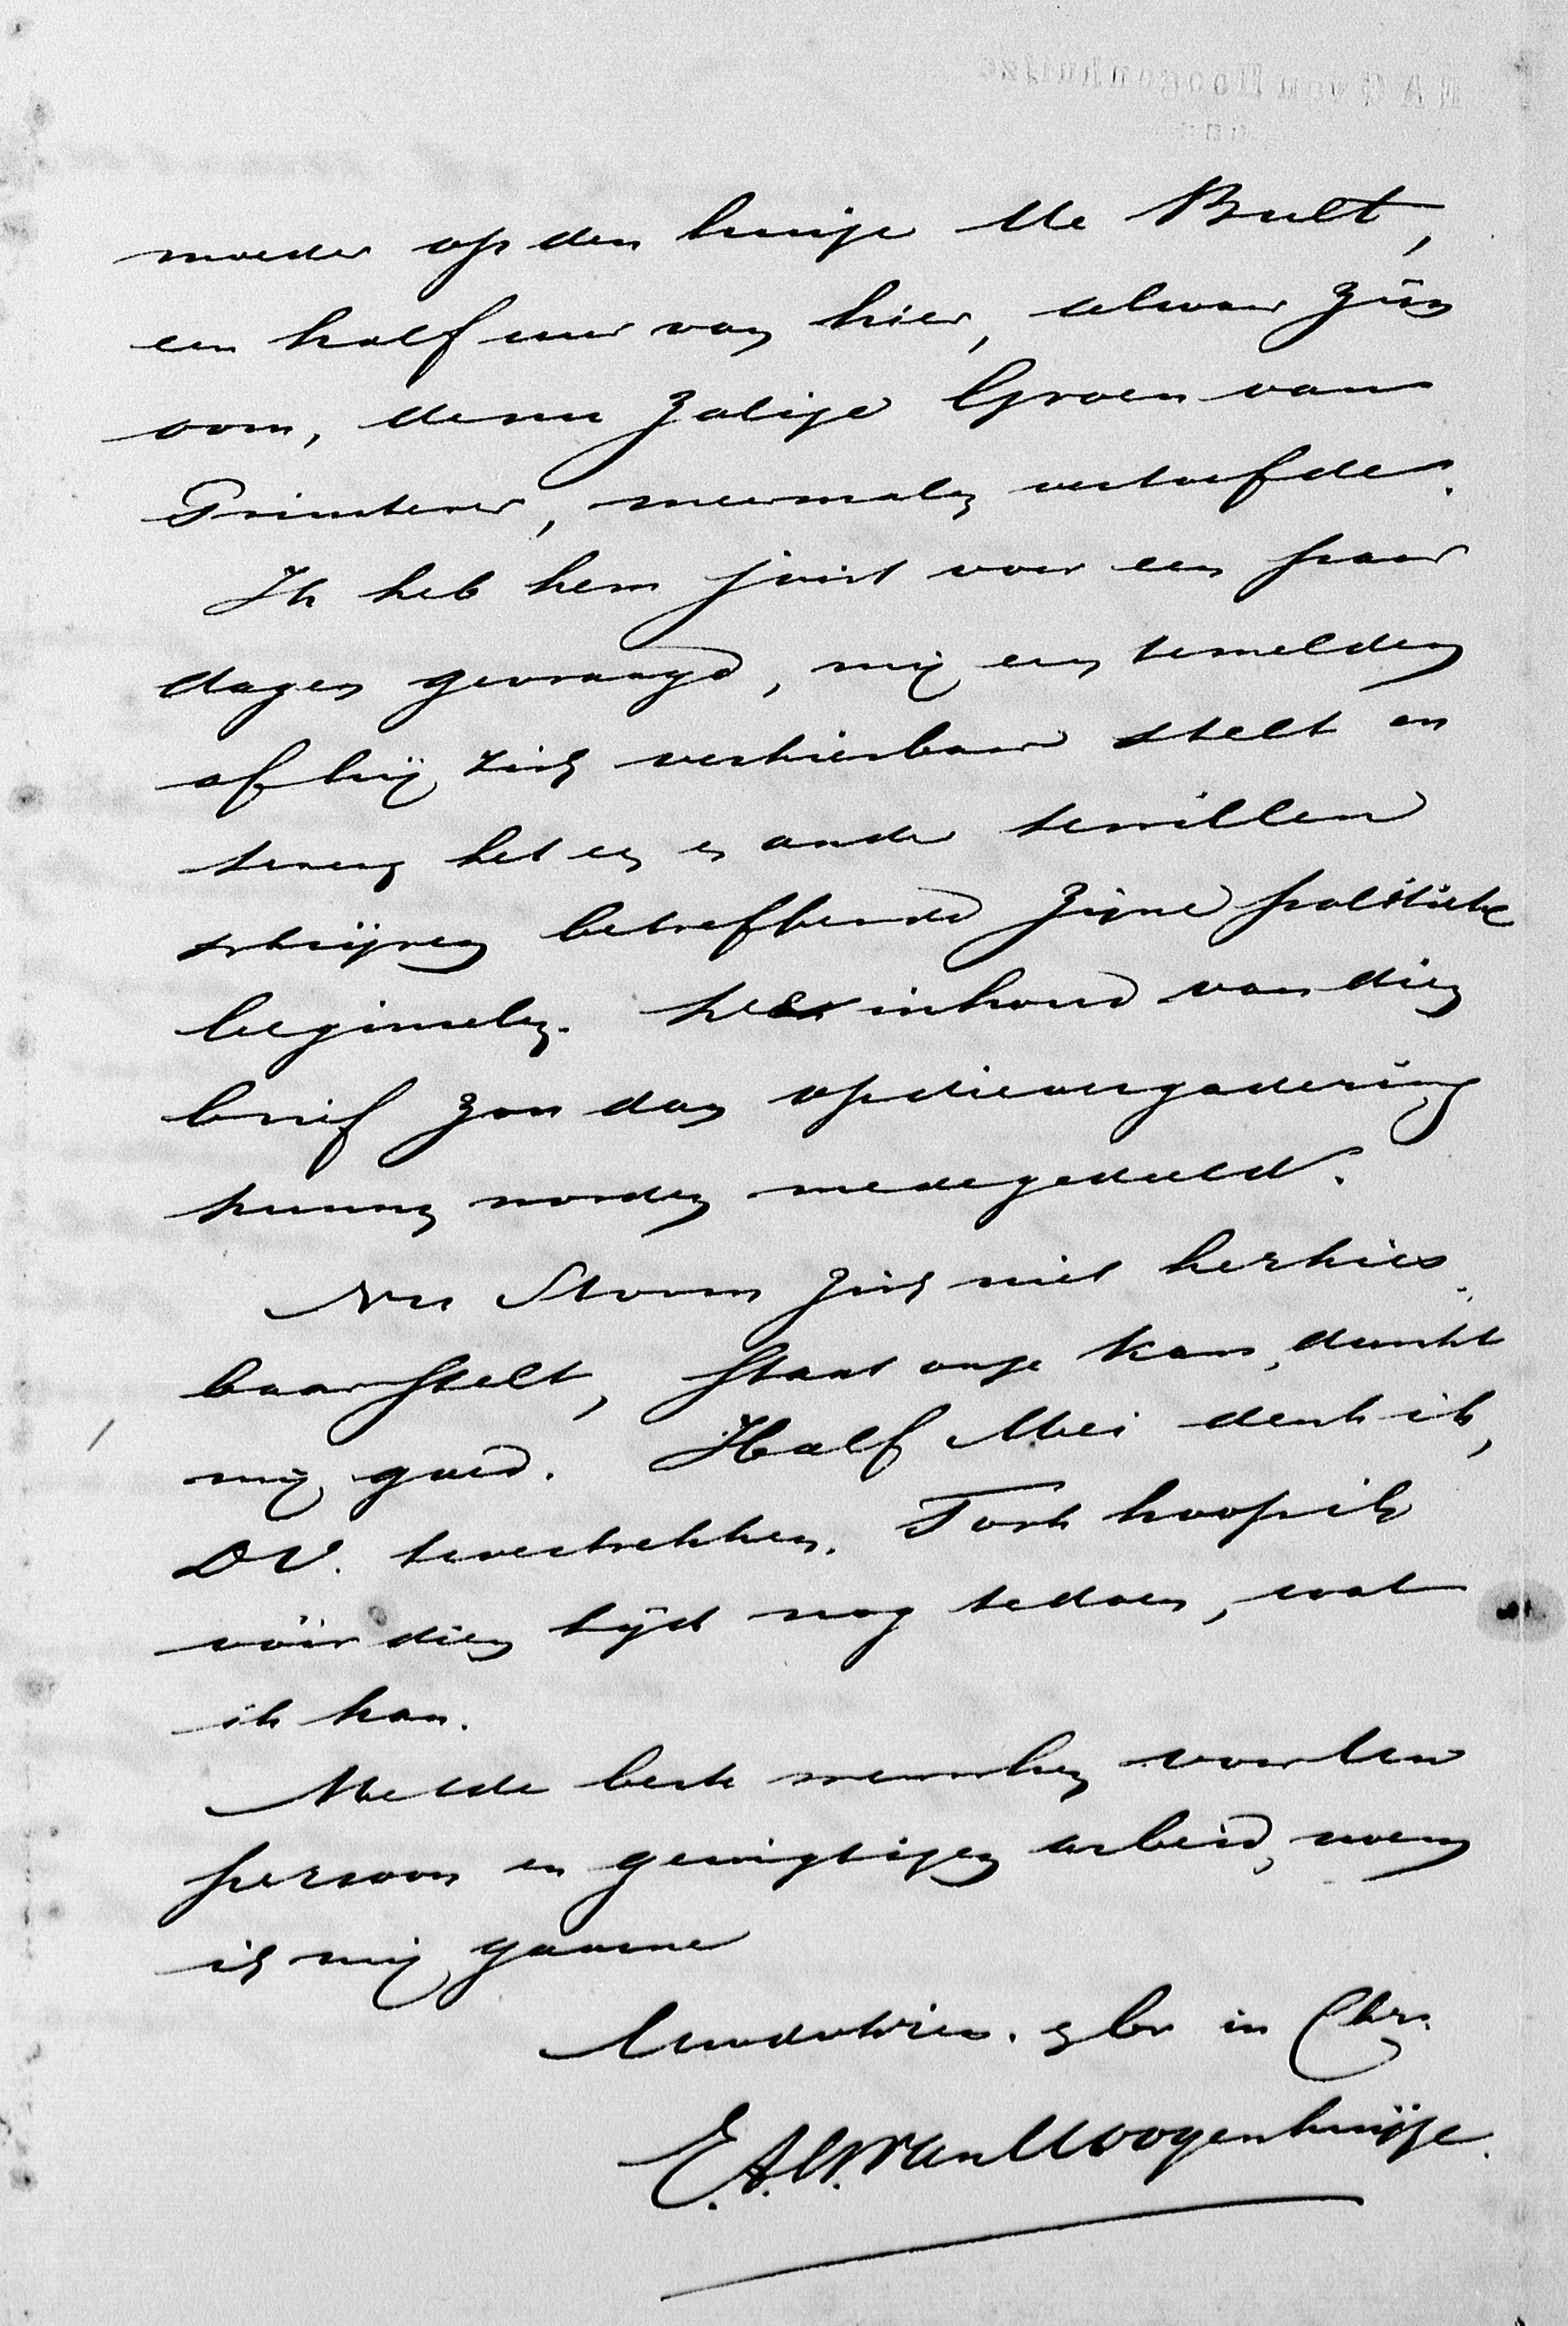 moeder op den huize de Bult,
een half uur van hier, alwaar zijn
oom, de nu zalige Groen van
Prinsterer, meermalen vertoefde.
Ik heb hem juist voor een paar
dagen gevraagd, mij een te melden
of hij zich verkiesbaar stelt en
tevens het een en ander te willen
schrijven betreffende zijne politieke
beginselen. De inhoud van dien
brief zou dan op die vergadering
kunnen worden medegedeeld.
Nu Storm zich niet herkies
baar stelt, staat onze kans, dunkt
mij goed. Half Mei denk ik,
DV. te vertrekken. Toch hoop ik
vóór dien tijd nog te doen, wat
ik kan.
Met de beste wenschen voor Uw
persoon en gewigtigen arbeid, noem
ik mij gaarne
Uw dw. vriend en br in Chr.
E. A. G. van Hoogenhuijze.